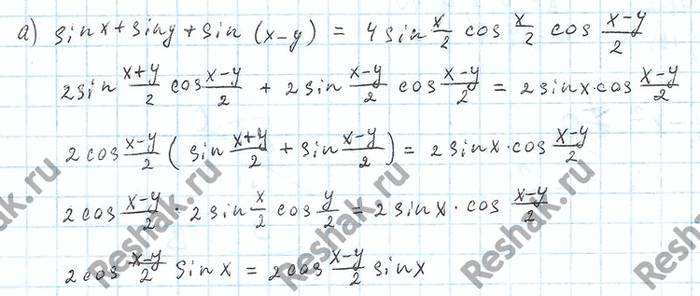 а) sin x + sin y + sin (x-y) = 4 sin x/2 cos x/2 cos (x-y)/2
2 sin (x+y)/2 cos (x-y)/2 + 2 sin (x-y)/2 cos (x-y)/2 = 2 sin x · cos (x-y)/2
2 cos (x-y)/2 ( sin (x+y)/2 + sin (x-y)/2 ) = 2 sin x · cos (x-y)/2
2 cos (x-y)/2 · 2 sin x/2 cos y/2 = 2 sin x · cos (x-y)/2
2 cos (x-y)/2 sin x = 2 cos (x-y)/2 sin x
Reshak.ru
Reshak.ru
Reshak.ru